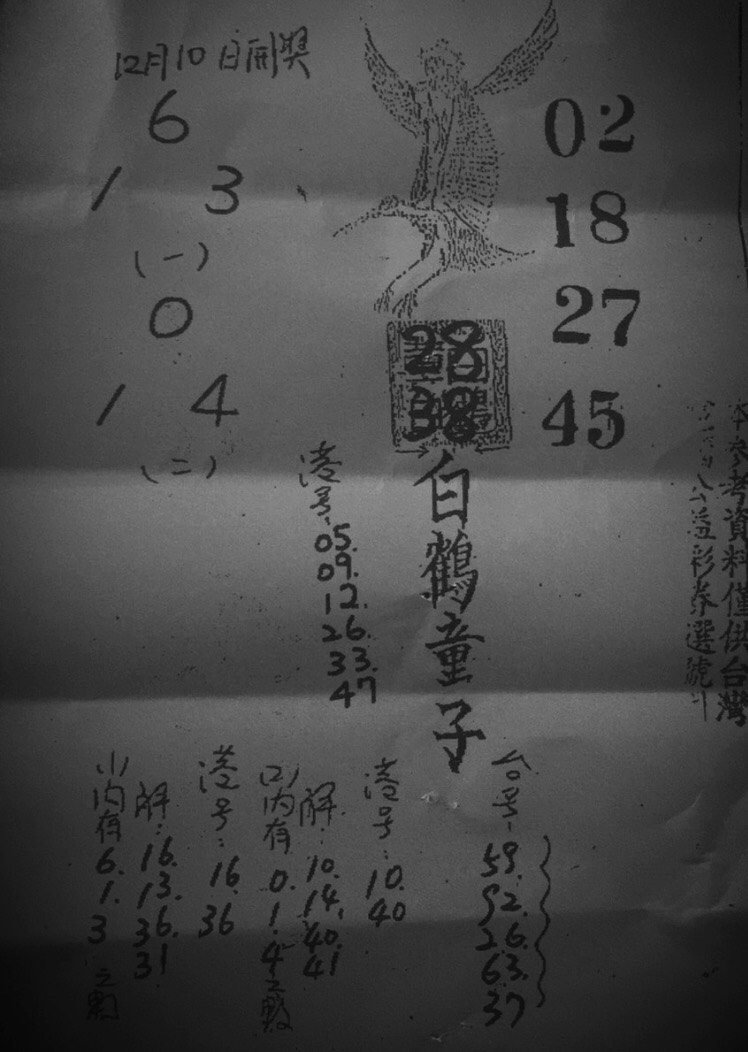 12月10日開奨
6
1 3
(一)
0
1 4
(二)
02
18
27
45
28
38
白鶴童子
港号:
05.
09.
12.
26.
33.
47
本參考資料僅供台灣
公益彩券選號
台号:
59.
92.
26.
63.
37
港号:
10.
40
(2)内有
0.
1.
4之數
解:
10.
14.
40.
41
港号:
16.
36
(1)内有
6.
1.
3
之數
解:
16.
13.
36.
31